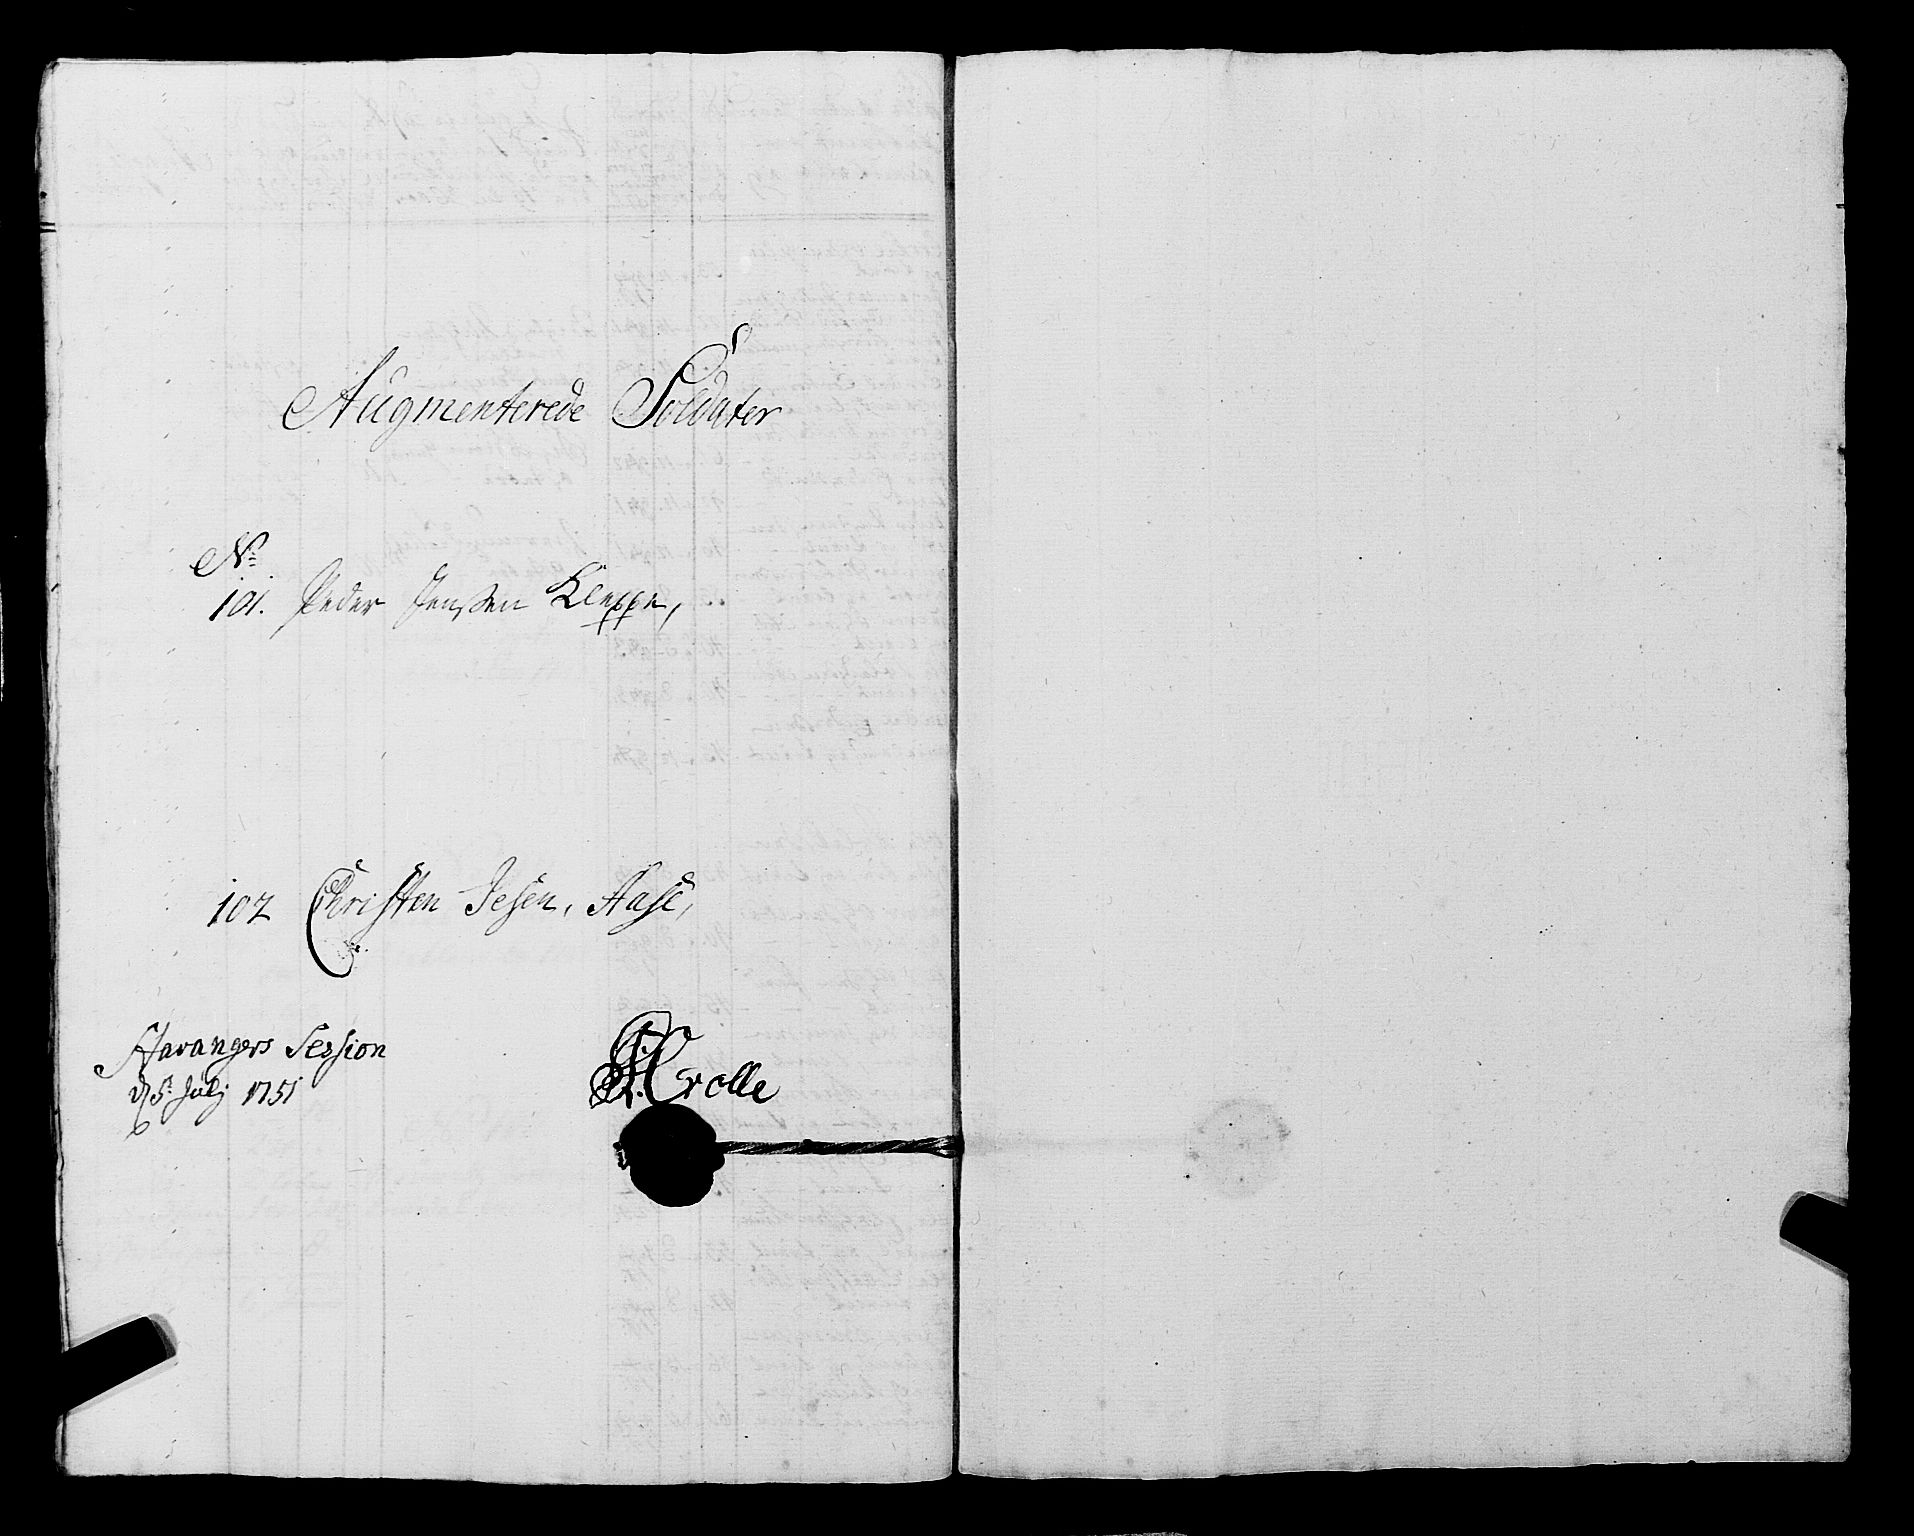 Augmenterede Soldater
No
101. Peder Jenssen Kleppe,
102 Christen Jesen, Aase,
Stavangers Session
d 5t Julij 1751
Crolle